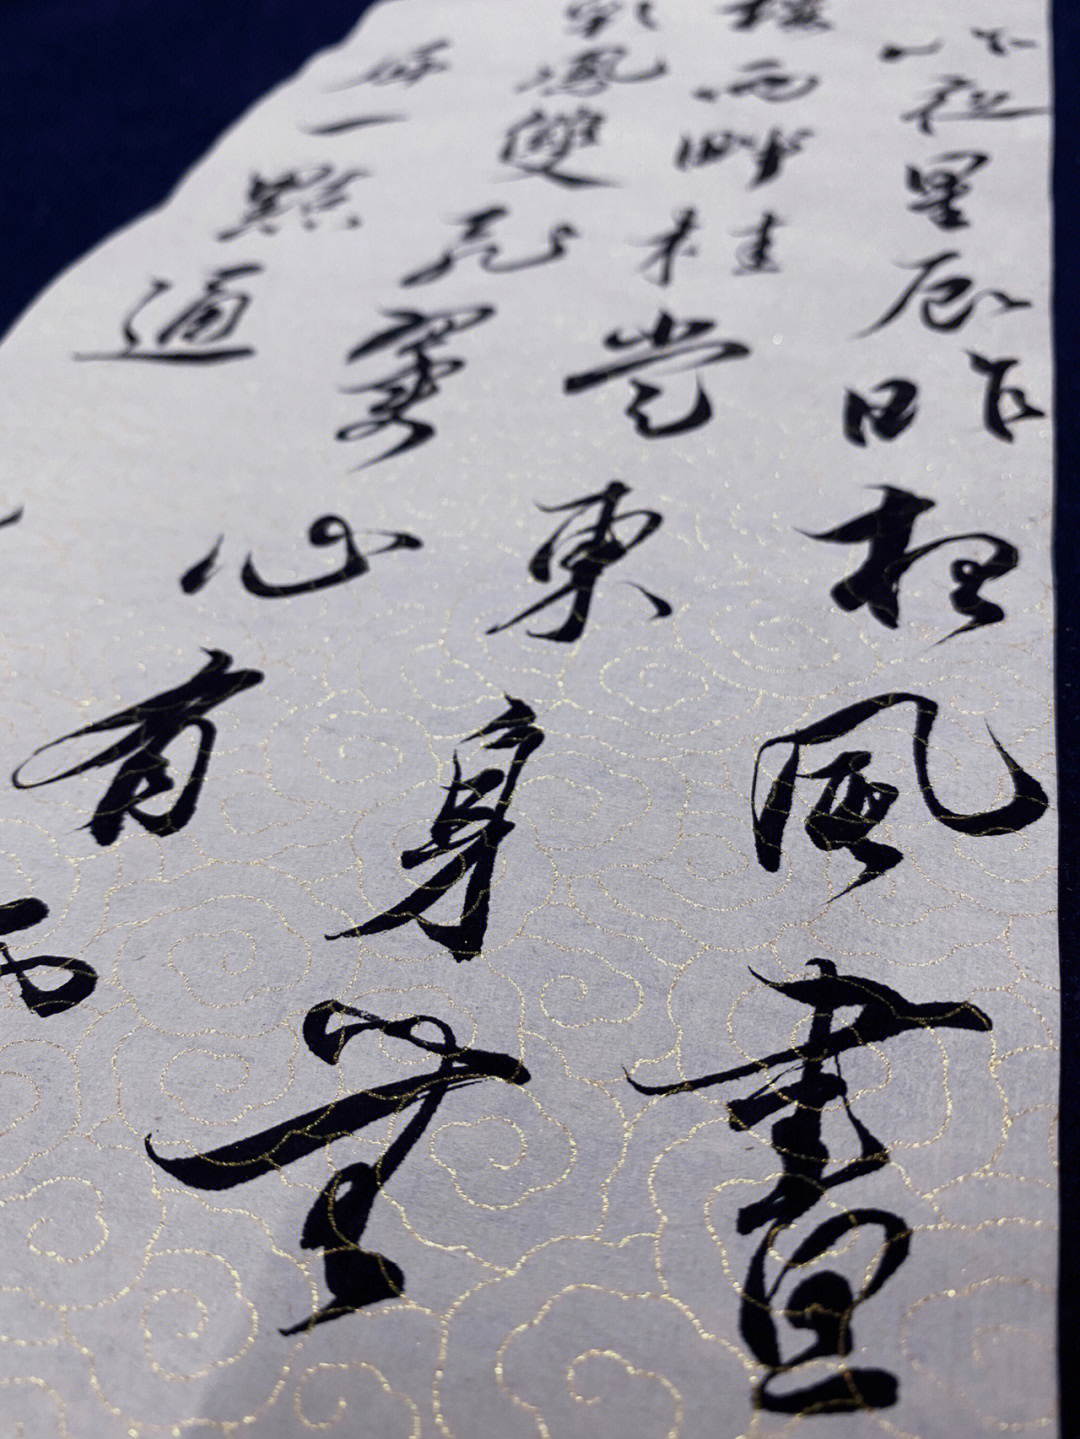 昨夜星辰昨夜風畫
樓西畔桂堂東身無
彩鳳雙飛翼心有
犀一點通